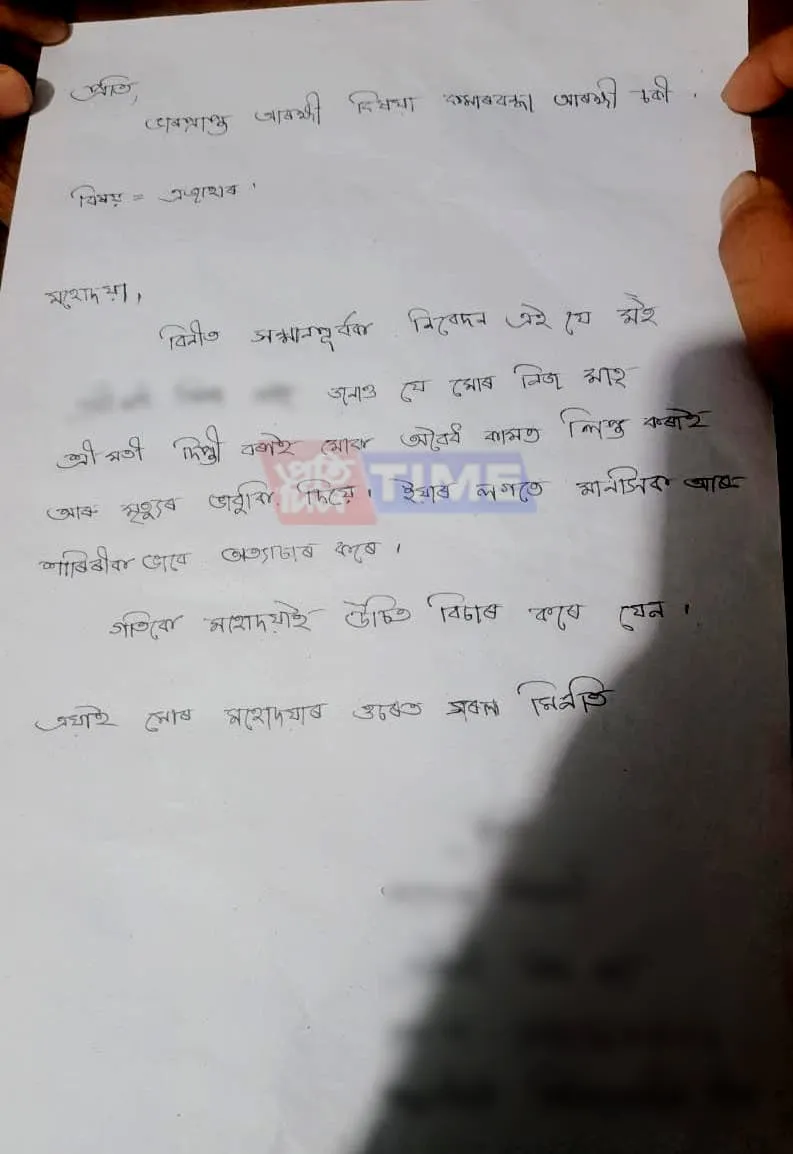 প্ৰতি,
ভাৰপ্ৰাপ্ত আৰক্ষী বিষয়া কমাৰবন্ধা আৰক্ষী চকী ।
বিষয় = এজাহাৰ ।
মহোদয়া,
বিনীত সন্মানপূৰ্বক নিবেদন এই যে মই
জনাও যে মোৰ নিজ মাহ
শ্ৰীমতী দিপ্তী বৰাই মোক অবৈধ কামত লিপ্ত কৰাই
আৰু মৃত্যুৰ ভাবুকি দিয়ে । ইয়াৰ লগতে মানসিক আৰু
শাৰিৰীক ভাবে অত্যাচাৰ কৰে ।
গতিকে মহোদয়াই উচিত বিচাৰ কৰে যেন ।
এয়াই মোৰ মহোদয়াৰ ওচৰত সৰল মিনতি
প্ৰতি দিন TIME